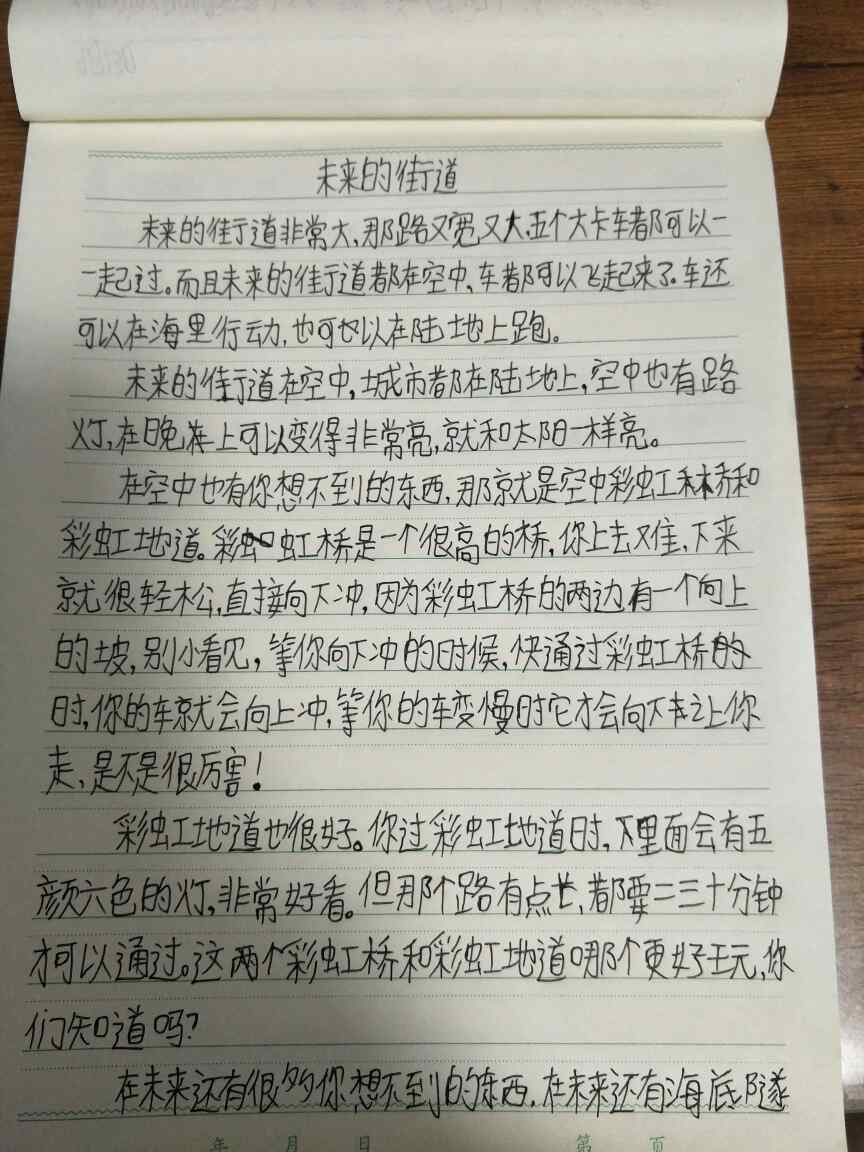 未来的街道
未来的街道非常大,那路又宽又大,五个大卡车都可以一
一起过。而且未来的街道都在空中、车都可以飞起来了.车还
可以在海里行动,也可也以在陆地上跑。
未来的街道在空中,城市都在陆地上,空中也有路
灯,在晚上可以变得非常亮,就和太阳一样亮。
在空中也有你想不到的东西,那就是空中彩虹桥和
彩虹地道。彩虹桥是一个很高的桥,你上去难,下来
就很轻松,直接向下冲,因为彩虹桥的两边有一个向上
的坡,别小看见,等你向下冲的时候,快通过彩虹桥的
时,你的车就会向上冲,等你的车变慢时它才会向下让你
走,是不是很厉害!
彩虹地道也很好。你过彩虹地道时,下里面会有五
颜六色的灯,非常好看。但那个路有点长,都要二三十分钟
才可以通过。这两个彩虹桥和彩虹地道哪个更好玩,你
们知道吗?
在未来还有很多你想不到的东西.在未来还有海底隧
年 月 日 第 页